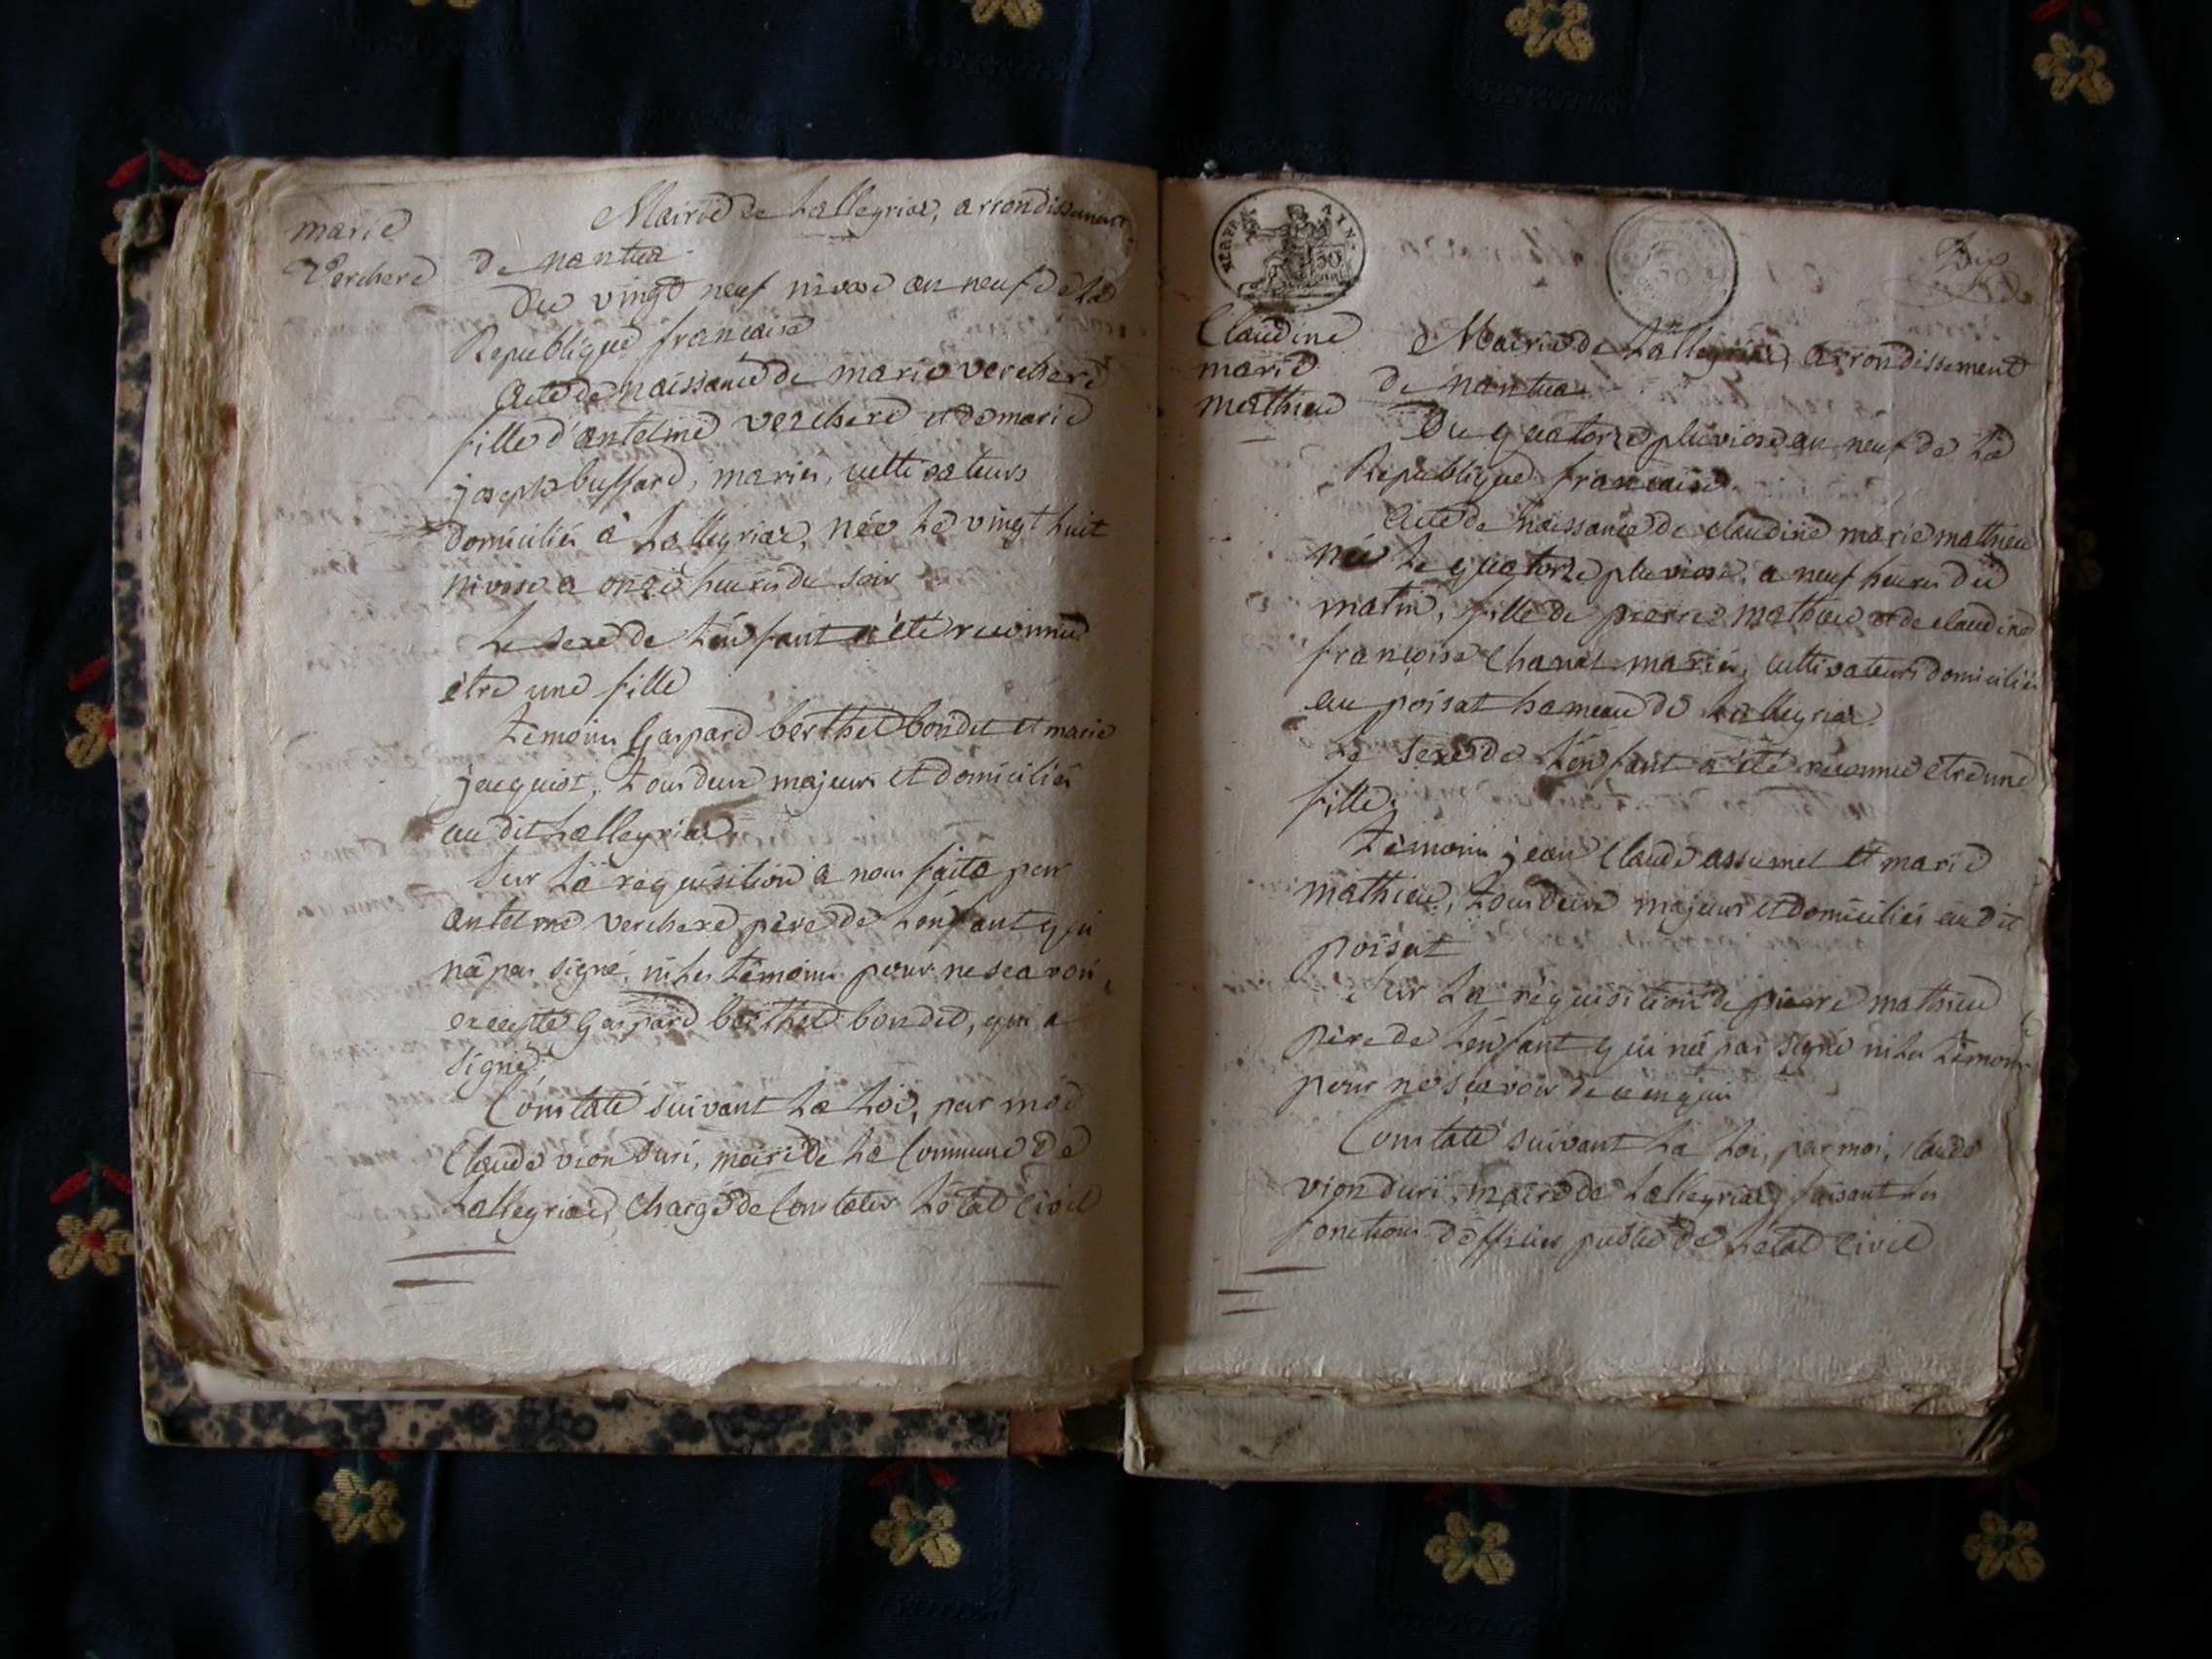 marie
Verchere
Mairie de Lalleyriat, arrondissement
de nantua
Du vingt neuf nivose an neuf de la
Republique francaise
Acte de naissance de marie verchere
fille d'antelme verchere et de marie
joseph buffard, mariés, cultivateurs
domiciliés a Lalleyriat, née le vingt huit
nivose a onze heures du soir
le sexe de lenfant a été reconnu
être une fille
témoins Gaspard berthet bondet et marie
jacquiot, tous deux majeurs et domiciliés
au dit Lalleyriat
Sur la réquisition a nous faite par
antelme verchere père de lenfant qui
na pas signé, ni les témoins pour ne scavoir,
excepté Gaspard berthet bondet, qui a
signé
Constaté suivant la loi, par moi
Claude vion duri, maire de la Commune de
Lalleyriat, chargé de Constater létat Civil
PER AIN
50
Dix
Claudine
marie
mathieu
Mairie de Lalleyriat, arrondissement
de nantua
Du quatorze pluviose an neuf de la
Republique francaise
Acte de naissance de claudine marie mathieu
née le quatorze pluviose, a neuf heures du
matin, fille de pierre mathieu et de claudine
francoise Chanal mariés, cultivateurs domiciliés
au poisat hameau de Lalleyriat
le sexe de lenfant a été reconnu etre une
fille
témoins jean Claude assumel et marie
mathieu, tous deux majeurs et domiciliés au dit
poisat
Sur la réquisition de pierre mathieu
père de lenfant qui na pas signé ni les témoins
pour ne scavoir de ce enquis
Constaté suivant la loi, par moi, Claude
vion duri, maire de Lalleyriat, faisant les
fonctions dofficier public de létat Civil